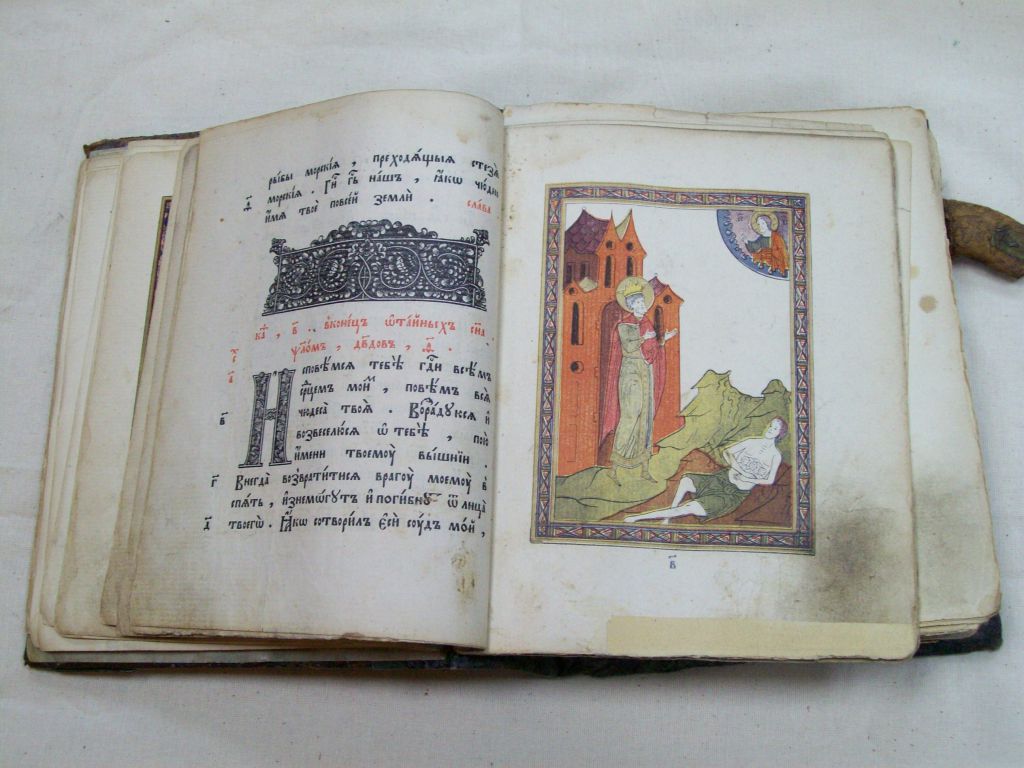 рыбы морскїѧ , преходѧ́щыѧ стезѧ̀
морскїѧ . Гд҃и гд҃ь на́шъ , ꙗ҆́кѡ чю́дно
и҆́мѧ твоѐ повсе́й землѝ . сла́ва
ка҃ , в҃ . . вконе́цъ ѡ҆та́йныхъ сн҃а .
ѱало́мъ , дв҃дов , ѳ҃ .
Исповѣ́мсѧ тебѣ̀ гд҃и всѣ́мъ
се́рдцемъ мои́мъ , повѣ́мъ всѧ̀
в҃ чюдеса̀ твоѧ̀ . Возра́дуюсѧ и҆
возвеселю́сѧ ѡ҆ тебѣ̀ , пою̀
и҆́мени твоемоу̀ вы́шнїи .
г҃ Внегда̀ возврати́тисѧ врагоу̀ моемоу̀ в
спѧ́ть , и҆знемо́гутъ и҆ поги́бнутъ ѿ лица̀
д҃ твоегѡ̀ . Ꙗ҆́кѡ сотвори́лъ є҆сѝ соу́дъ мо́й ,
в҃